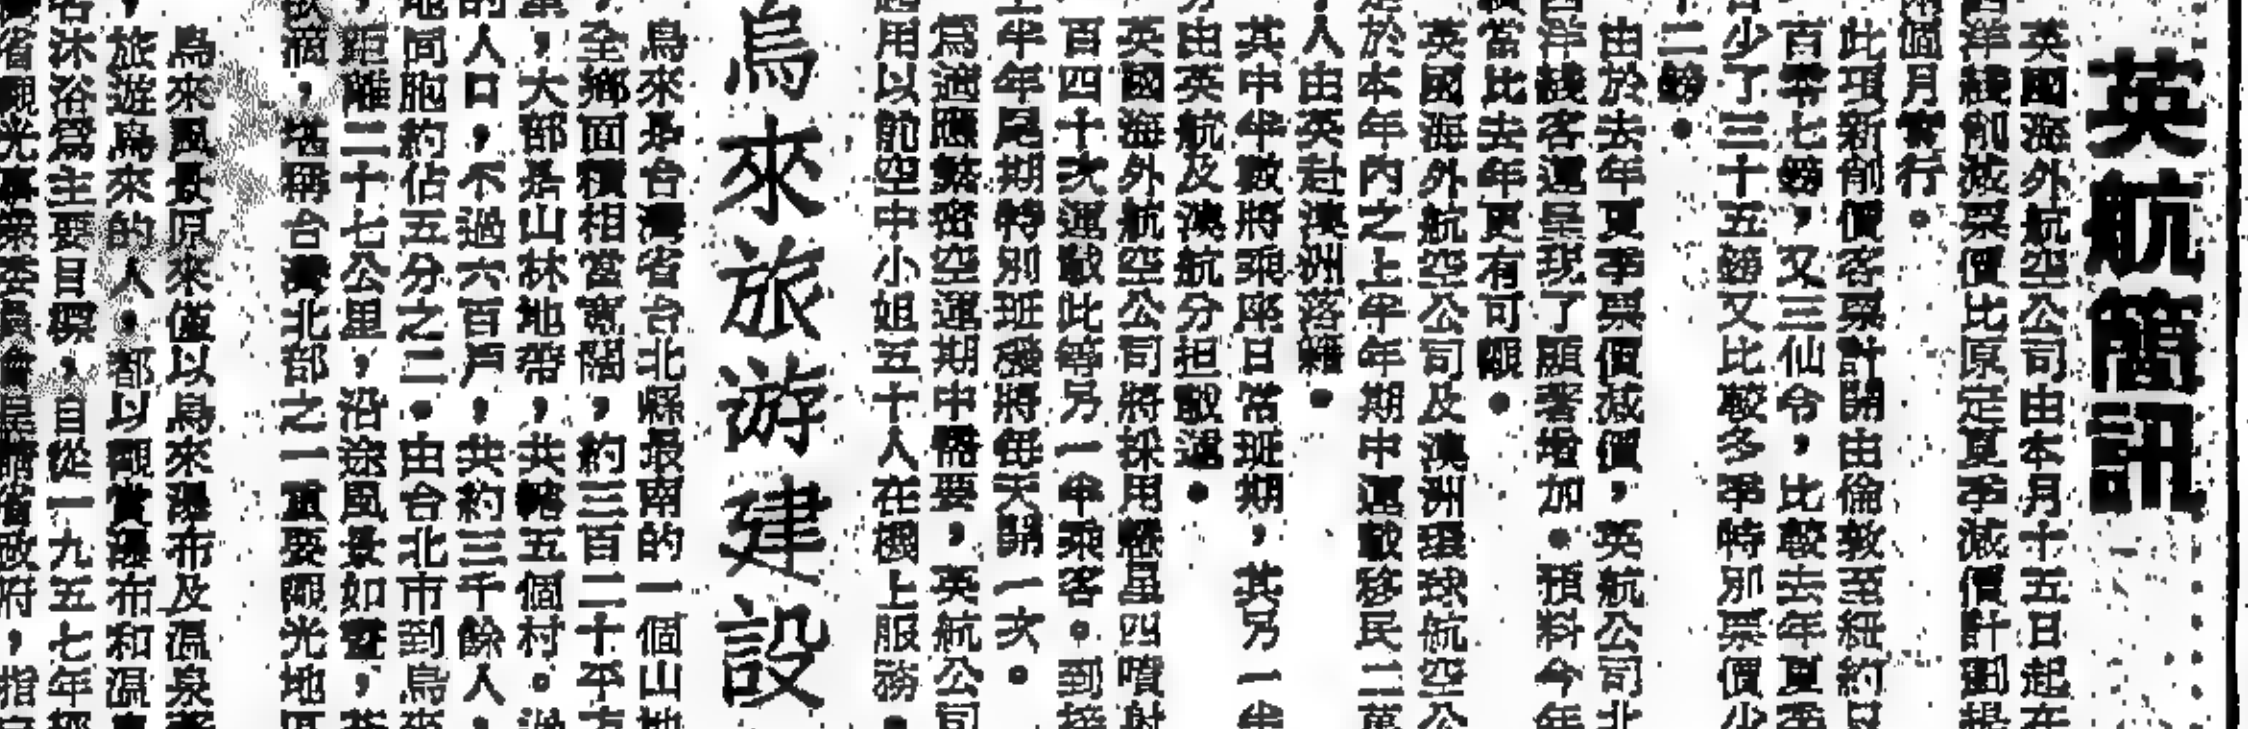 英航簡訊
英國海外航空公司由本月十五日起在
洋綫創減票價比原定夏季減價計劃提
個月實行。
此項新削價客票計開由倫敦至紐約只
百零七鎊，又三仙令，比較去年夏季
少了三十五鎊又比較多季時別票價少
二鎊。
由於去年夏季票價減價，英航公司北
洋綫客運呈現了顯著增加。預料今年
當比去年更有可觀。
英國海外航空公司及澳洲環球航空公
於本年內之上半年年期中運載移民二萬
人由英赴澳洲落籍。
其中半數將乘座日常班期，其另一半
由英航及澳航分担載運。
英國海外航空公司將採用慧星四噴射
百四十次運載此等另一半乘客。到
半年尾期特別班機將每天開一次。
爲適應繁密空運期中需要，英航公司
用以航空中小姐五十人在機上服務。
烏來旅游建設
烏來是台灣省台北縣最南的一個山地
，全鄉面積相當寬闊，約三百二十平方
，大部是山林地帶，共轄五個村。
的人口，不過六百戶，共約三千餘人，
地同胞約佔五分之二。由台北市到烏來
距離二十七公里，沿途風景如畫，
，堪稱台灣北部之一重要觀光地區
烏來風景原來僅以烏來瀑布及溫泉著
，旅遊烏來的人。都以觀賞瀑布和溫
名沐浴爲主要目標，自從一九五七年經
省觀光事業委員會呈請省政府，指